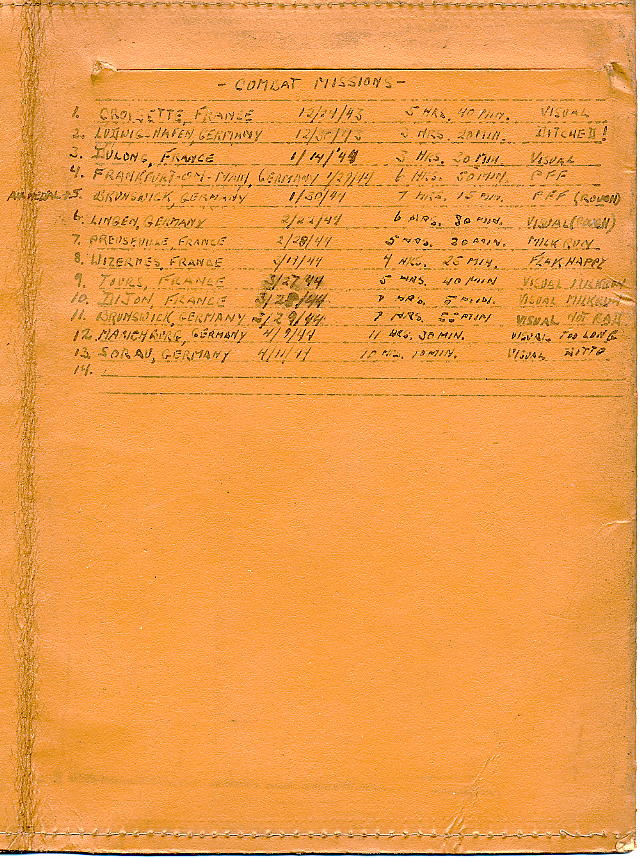 - COMBAT MISSIONS -
1. CROISETTE, FRANCE 12/24/43 5 HRS. 40 MIN. VISUAL
2. LUDWIG-HAFEN, GERMANY 12/30/43 HRS. 20 MIN. DITCHED!
3. FRANCE 1/14/44 3 HRS. 50 MIN. VISUAL
4. FRANKFURT-ON-MAIN, GERMANY 1/29/44 6 HRS. 50 MIN. PFF
AIR MEDAL → 5. BRUNSWICK, GERMANY 1/30/44 7 HRS. 15 MIN. PFF (ROUGH)
6. LINGEN, GERMANY 2/22/44 6 HRS. 30 MIN. VISUAL (ROUGH)
7. FRANCE 2/28/44 5 HRS. 30 MIN. MILK RUN
8. WIZERNES, FRANCE 4 HRS. 25 MIN. FLAK HAPPY
9. TOURS, FRANCE 3/27/44 5 HRS. 40 MIN VISUAL MILKRUN
10. DIJON, FRANCE 3/28/44 HRS. MIN. VISUAL MILKRUN
11. BRUNSWICK, GERMANY 3/29/44 7 HRS. 55 MIN VISUAL NOT BAD
12. MARIENBURG, GERMANY 4/9/44 11 HRS. 30 MIN. VISUAL TOO LONG
13. SORAU, GERMANY 4/11/44 HRS. 10 MIN. VISUAL DITTO
14.